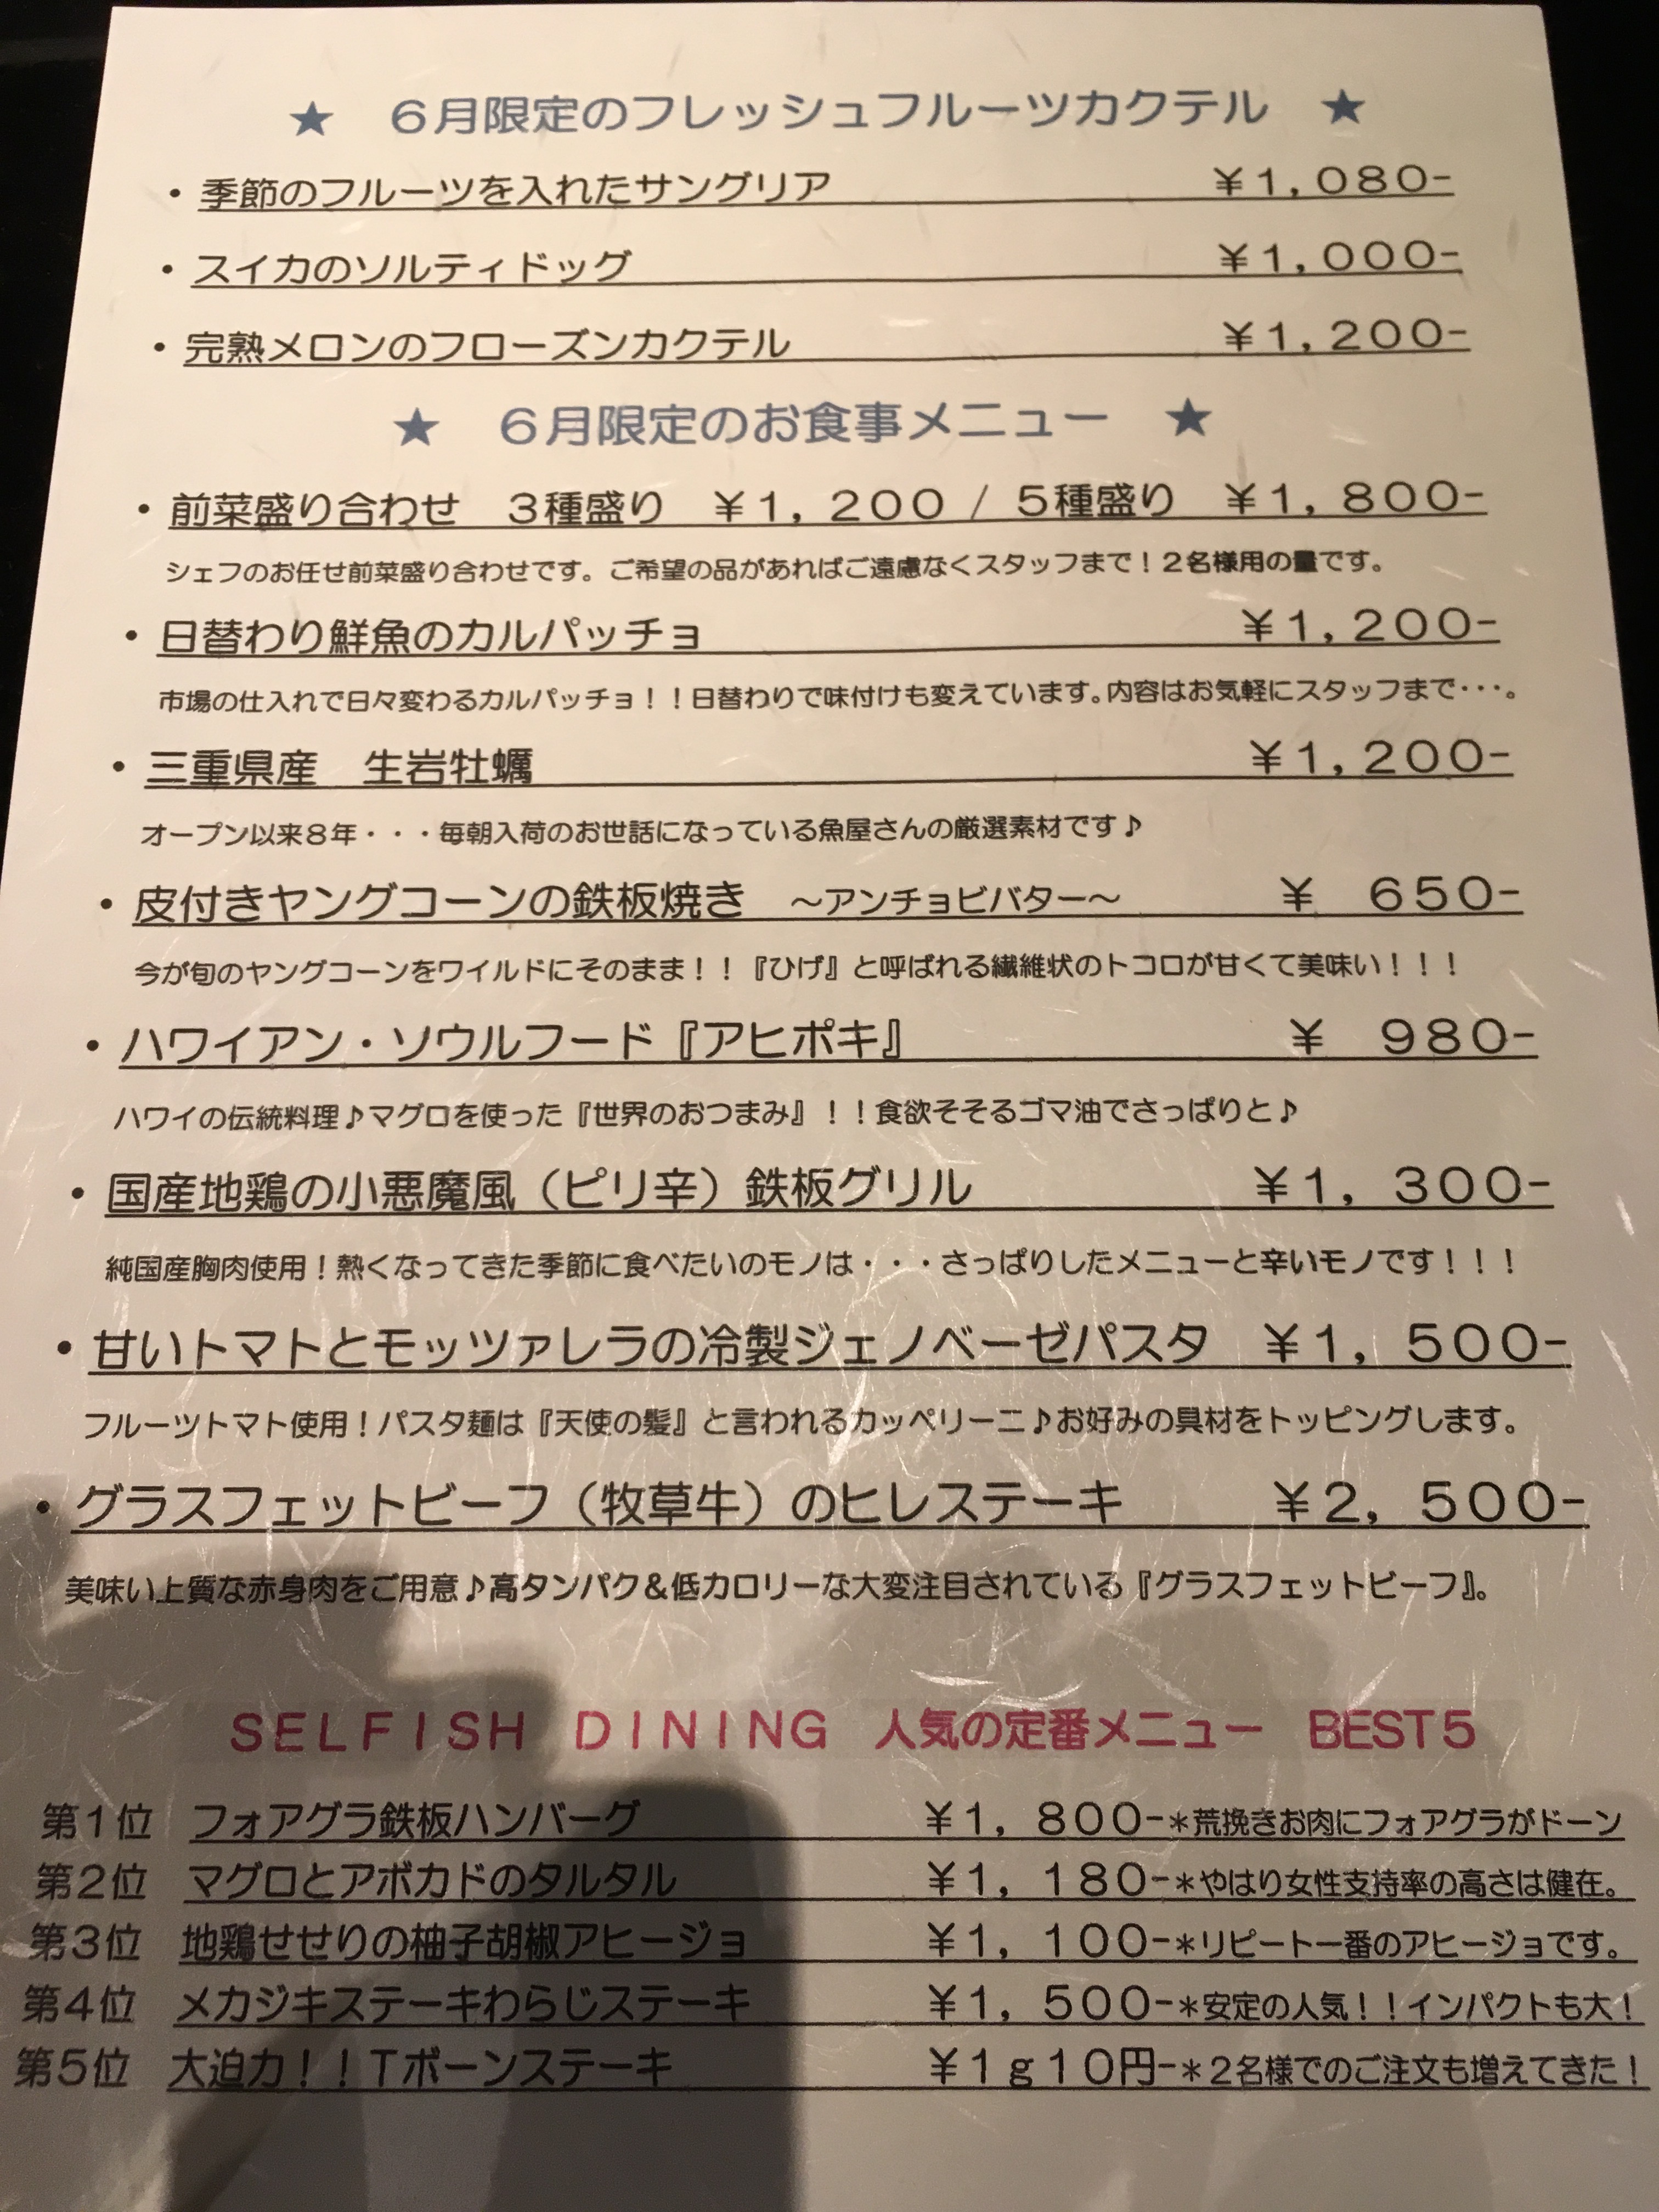 ★ 6月限定のフレッシュフルーツカクテル ★
・季節のフルーツを入れたサングリア ¥1,080-
・スイカのソルティドッグ ¥1,000-
・完熟メロンのフローズンカクテル ¥1,200-
★ 6月限定のお食事メニュー ★
・前菜盛り合わせ 3種盛り ¥1,200 / 5種盛り ¥1,800-
シェフのお任せ前菜盛り合わせです。ご希望の品があればご遠慮なくスタッフまで！2名様用の量です。
・日替わり鮮魚のカルパッチョ ¥1,200-
市場の仕入れで日々変わるカルパッチョ！！日替わりで味付けも変えています。内容はお気軽にスタッフまで・・・。
・三重県産 生岩牡蠣 ¥1,200-
オープン以来8年・・・毎朝入荷のお世話になっている魚屋さんの厳選素材です♪
・皮付きヤングコーンの鉄板焼き ～アンチョビバター～ ¥ 650-
今が旬のヤングコーンをワイルドにそのまま！！『ひげ』と呼ばれる繊維状のトコロが甘くて美味い！！！
・ハワイアン・ソウルフード『アヒポキ』 ¥ 980-
ハワイの伝統料理♪マグロを使った『世界のおつまみ』！！食欲そそるゴマ油でさっぱりと♪
・国産地鶏の小悪魔風（ピリ辛）鉄板グリル ¥1,300-
純国産胸肉使用！熱くなってきた季節に食べたいのモノは・・・さっぱりしたメニューと辛いモノです！！！
・甘いトマトとモッツァレラの冷製ジェノベーゼパスタ ¥1,500-
フルーツトマト使用！パスタ麺は『天使の髪』と言われるカッペリーニ♪お好みの具材をトッピングします。
・グラスフェットビーフ（牧草牛）のヒレステーキ ¥2,500-
美味い上質な赤身肉をご用意♪高タンパク＆低カロリーな大変注目されている『グラスフェットビーフ』。
SELFISH DINING 人気の定番メニュー BEST5
第1位 フォアグラ鉄板ハンバーグ ¥1,800-＊荒挽きお肉にフォアグラがドーン
第2位 マグロとアボカドのタルタル ¥1,180-＊やはり女性支持率の高さは健在。
第3位 地鶏せせりの柚子胡椒アヒージョ ¥1,100-＊リピート一番のアヒージョです。
第4位 メカジキステーキわらじステーキ ¥1,500-＊安定の人気！！インパクトも大！
第5位 大迫力！！Tボーンステーキ ¥1g10円-＊2名様でのご注文も増えてきた！